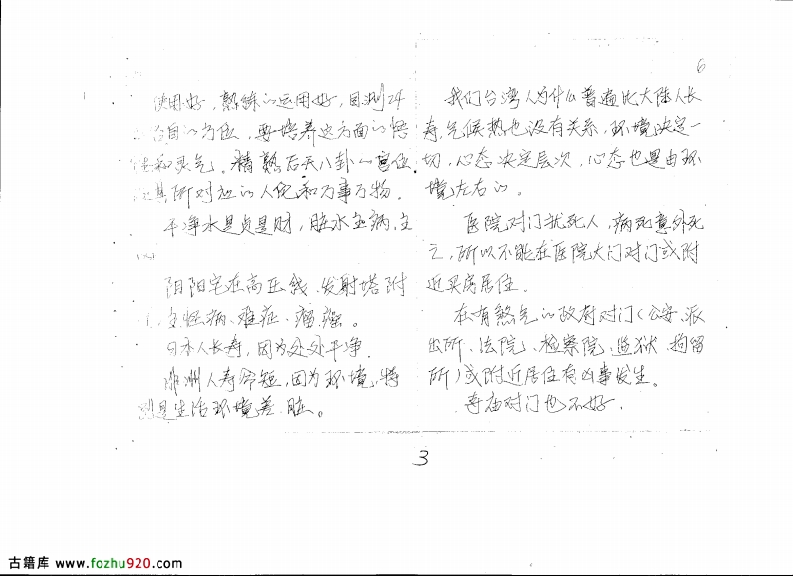 使用好，熟练的运用好，目测24
自的方位，要培养这方面的悟
性和灵气。精熟后天八卦八宫位
所对应的人化和万事万物。
干净水是贞是财，脏水主病，主
凶
阴阳宅在高压线、发射塔附
主怪病、难症、瘤癌。
日本人长寿，因为处处干净，
非洲人寿命短，因为环境，特
别是生活环境差、脏。
6
我们台湾人为什么普遍比大陆人长
寿，气候热也没有关系，环境决定一
切，心态决定层次，心态也是由环
境左右的。
医院对门犹死人，病死意外死
亡，所以不能在医院大门对门或附
近买房居住。
在有煞气的政府对门（公安、派
出所、法院、检察院、监狱、拘留
所）或附近居住有凶事发生。
寺庙对门也不好。
3
古籍库 www.fozhu920.com